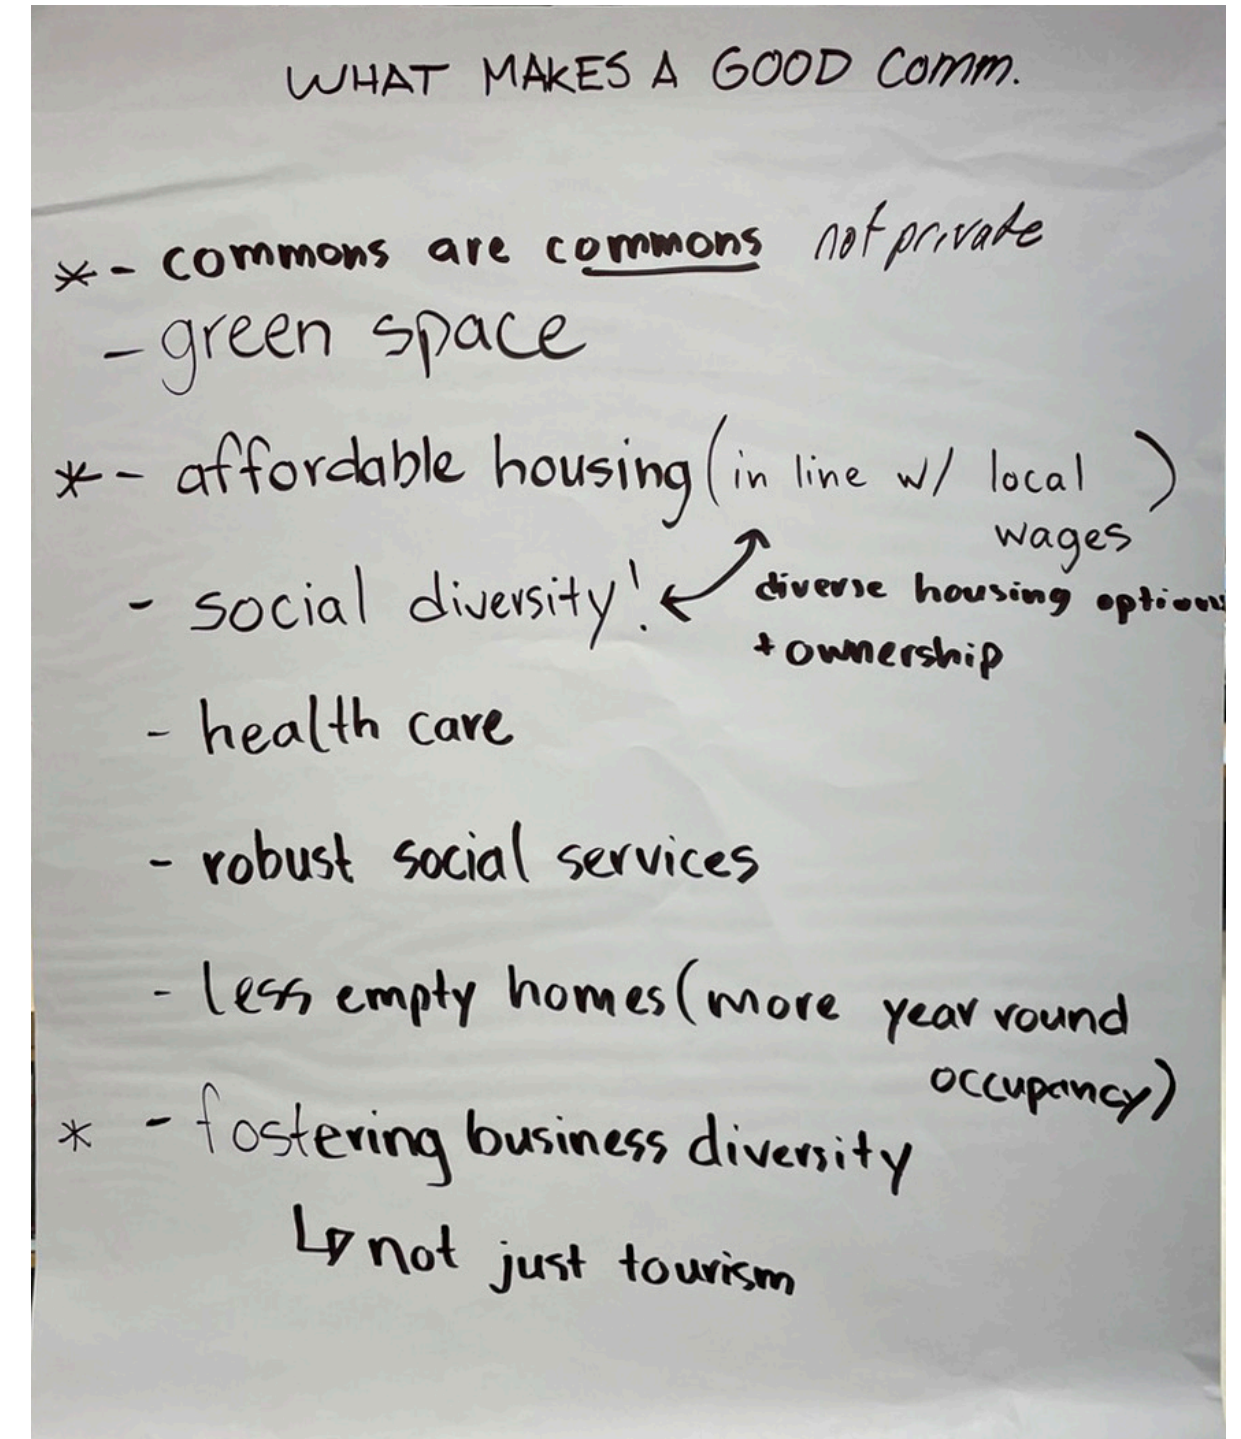 WHAT MAKES A GOOD Comm.
* - commons are commons not private
- green space
* - affordable housing (in line w/ local wages)
- social diversity!
diverse housing options
+ ownership
- health care
- robust social services
- less empty homes (more year round
occupancy)
* - fostering business diversity
↳ not just tourism